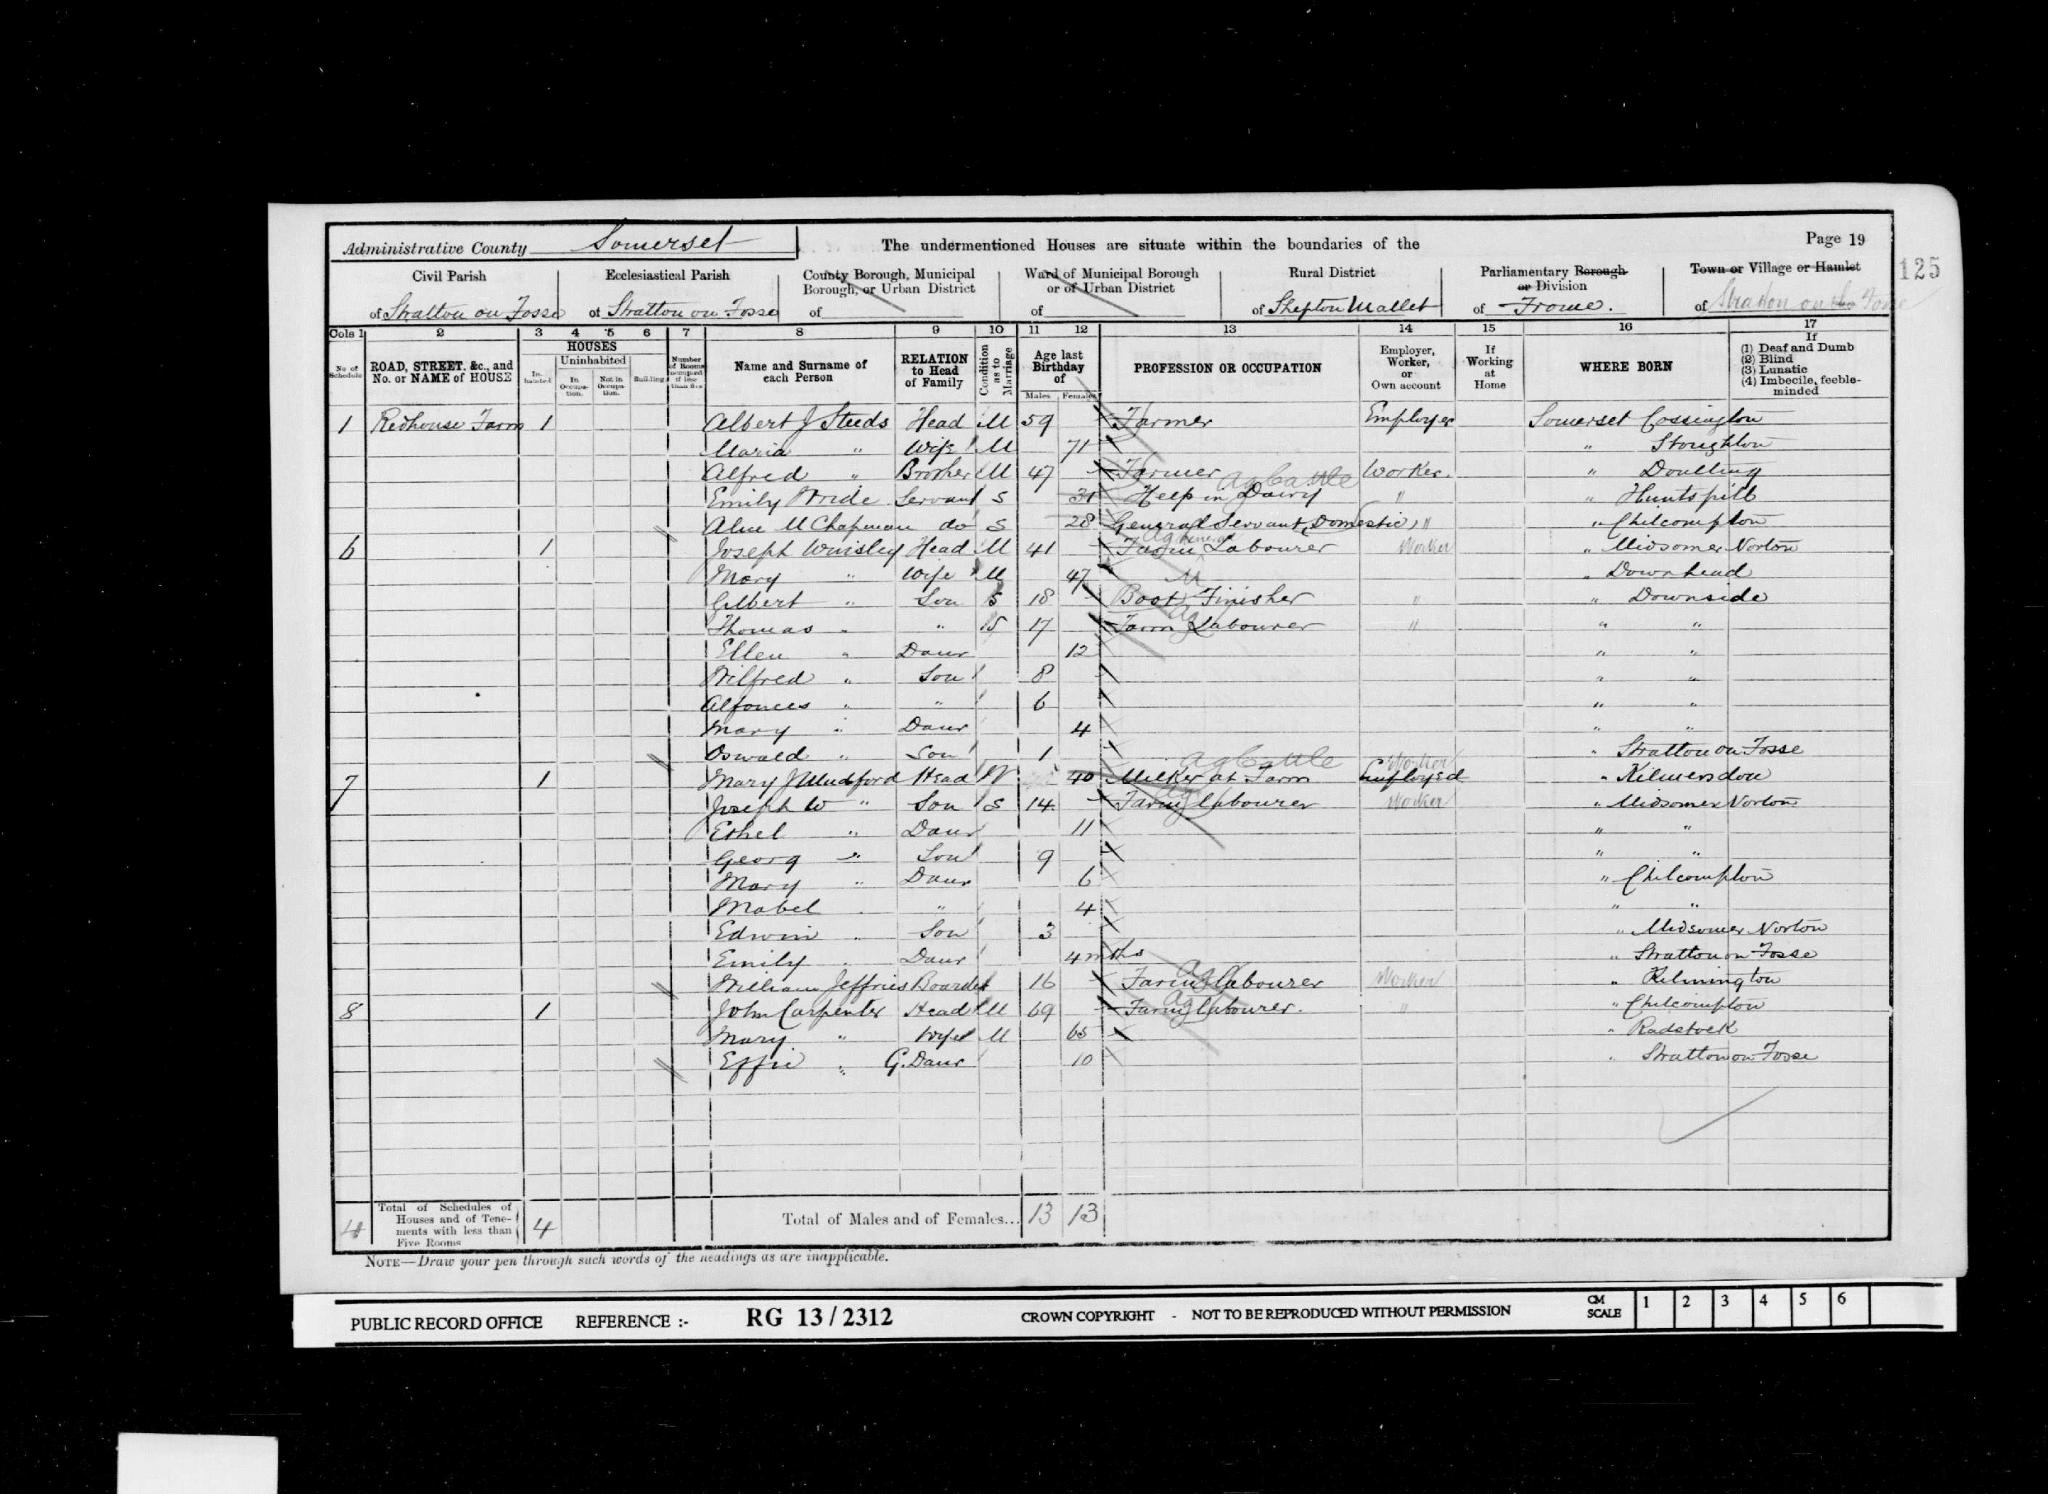 Administrative County Somerset The undermentioned Houses are situate within the boundaries of the Page 19
125
Civil Parish of Stratton on Fosse
Ecclesiastical Parish of Stratton on Fosse
County Borough, Municipal Borough, or Urban District of
Ward of Municipal Borough or of Urban District of
Rural District of Shepton Mallet
Parliamentary Borough or Division of Frome.
Town or Village or Hamlet of Stratton on the Fosse
Cols 1 2 3 4 5 6 7 8 9 10 11 12 13 14 15 16 17
No. of Schedule
ROAD, STREET, &c., and No. or NAME of HOUSE
HOUSES
Inhabited
Uninhabited
In Occupation.
Not in Occupation.
Building
Number of Rooms occupied if less than five
Name and Surname of each Person
RELATION to Head of Family
Condition as to Marriage
Age last Birthday of
Males Females
PROFESSION OR OCCUPATION
Employer, Worker, or Own account
If Working at Home
WHERE BORN
If
(1) Deaf and Dumb
(2) Blind
(3) Lunatic
(4) Imbecile, feeble-minded
1 Redhouse Farm 1 Albert J Steeds Head M 59 Farmer Employer Somerset Cossington
Maria " Wife M 71 " Stoughton
Alfred " Brother M 47 Farmer Ag Cattle Worker " Doulting
Emily Pride Servant S 31 Help in Dairy " " Huntspill
Alice M Chapman do S 28 General Servant, Domestic " " Chilcompton
6 1 Joseph Winsley Head M 41 Farm Labourer Worker " Midsomer Norton
Mary " Wife M 47 " Downhead
Gilbert " Son S 18 Boot Finisher " " Downside
Thomas " " S 17 Farm Labourer Ag " " "
Ellen " Daur 12 " "
Wilfred " Son 8 " "
Alfonces " " 6 " "
Mary " Daur 4 " "
Oswald " Son 1 " Stratton on Fosse
7 1 Mary J Mudford Head W 40 Milker at Farm Ag Cattle Employed Worker " Kilmersdon
Joseph W " Son S 14 Farm Labourer Ag Worker " Midsomer Norton
Ethel " Daur 11 " "
Georg " Son 9 " "
Mary " Daur 6 " Chilcompton
Mabel " " 4 " "
Edwin " Son 3 " Midsomer Norton
Emily " Daur 4 mths " Stratton on Fosse
William Jeffries Boarder 16 Farm Labourer Ag Worker " Kilmington
8 1 John Carpenter Head M 69 Farm Labourer. Ag " " Chilcompton
Mary " Wife M 65 " Radstock
Effie " G. Daur 10 " Stratton on Fosse
4 Total of Schedules of Houses and of Tenements with less than Five Rooms 4 Total of Males and of Females... 13 13
NOTE—Draw your pen through such words of the headings as are inapplicable.
PUBLIC RECORD OFFICE REFERENCE :- RG 13/2312 CROWN COPYRIGHT - NOT TO BE REPRODUCED WITHOUT PERMISSION CM SCALE 1 2 3 4 5 6